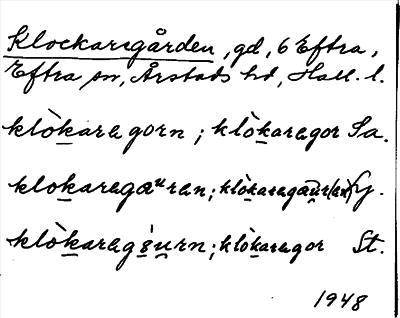 Klockarsgården, gd, 6 Eftra,
Eftra sn, Årstads hd, Hall. l.
klòkaragorn ; klòkaragor Sa.
klokaragaᵘran ; klòkaragau̯r(en) Gg.
klòkaragɛ́u̯rn ; klòkaragor St.
1948